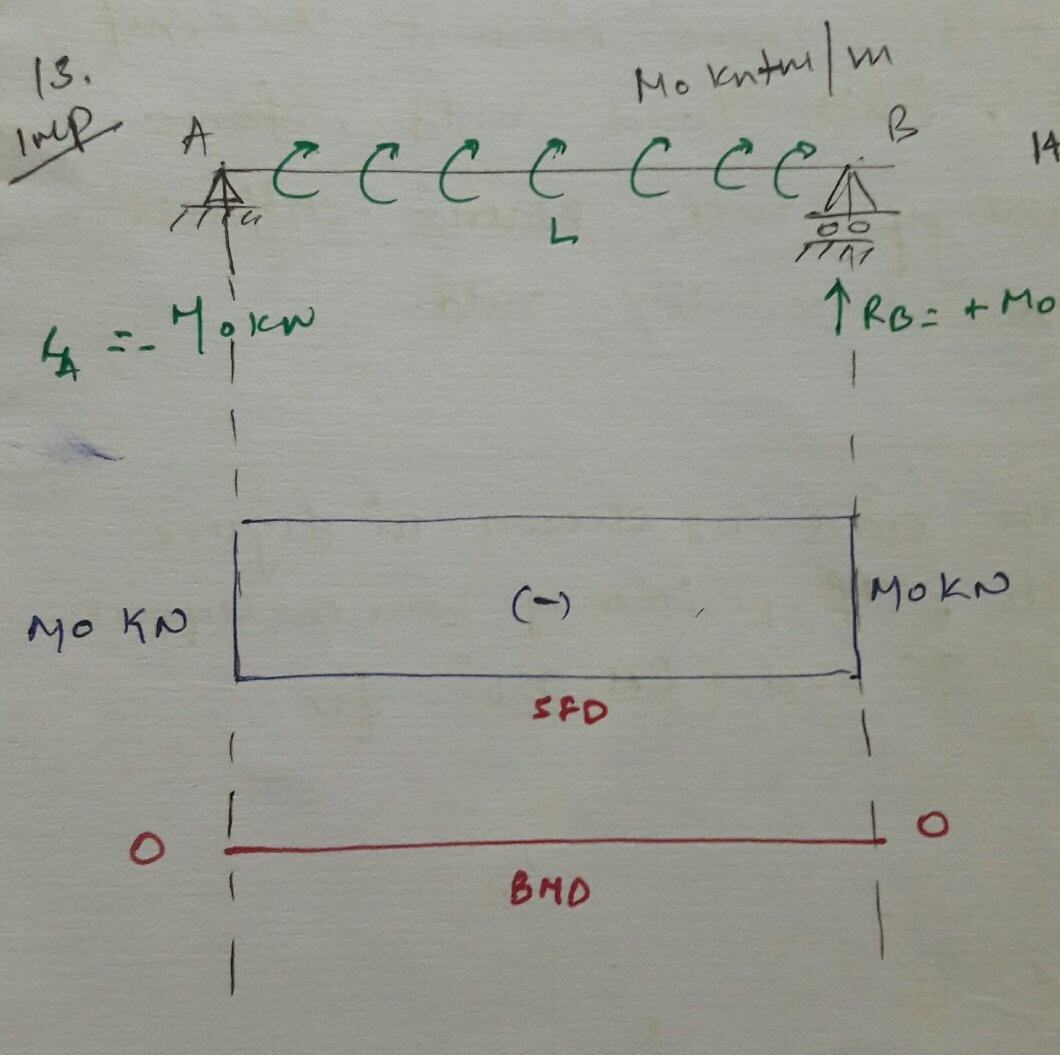 13.
Imp
M0 kn+m/m
A
B
14
L
= - M0 KN
RB = + M0
M0 KN
(-)
M0 KN
SFD
0
0
BMD